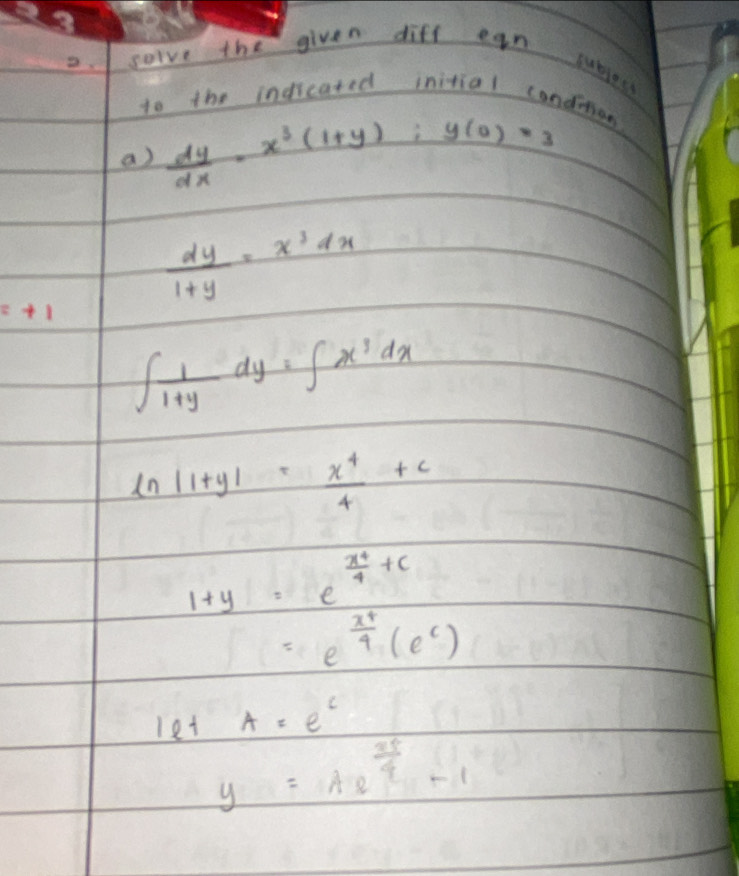 2. solve the given diff eqn subject
to the indicated initial condition
a) dy/dx = x³(1+y) ; y(0) = 3
dy/1+y = x³ dx
= +1
∫ 1/1+y dy = ∫ x³ dx
ln |1+y| = x⁴/4 + c
1+y = e^(x⁴/4 + c)
= e^(x⁴/4) (e^c)
let A = e^c
y = A e^(x⁴/4) - 1